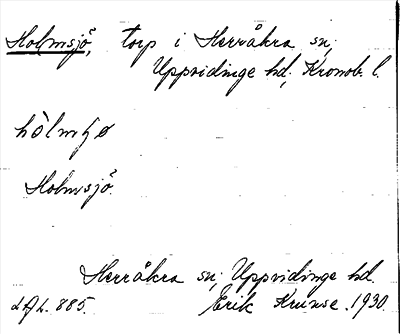 Holmsjö, torp i Herråkra sn,
Uppvidinge hd, Kronob. l.
hòlmʃø
Holmsjö
Herråkra sn, Uppvidinge hd.
LAL. 885. Erik Krunse. 1930.